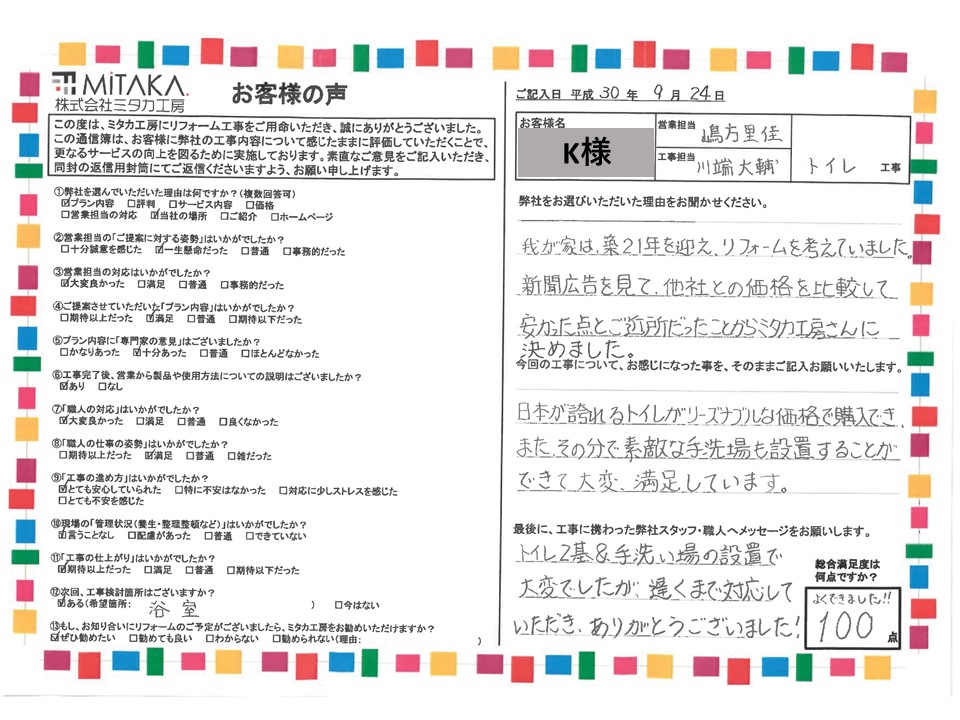 MiTAKA.
株式会社ミタカ工房
お客様の声
この度は、ミタカ工房にリフォーム工事をご用命いただき、誠にありがとうございました。
この通信簿は、お客様に弊社の工事内容について感じたままに評価していただくことで、
更なるサービスの向上を図るために実施しております。素直なご意見をご記入いただき、
同封の返信用封筒にてご返信くださいますよう、お願い申し上げます。
①弊社を選んでいただいた理由は何ですか?(複数回答可)
☑プラン内容 □評判 □サービス内容 □価格
□営業担当の対応 ☑当社の場所 □ご紹介 □ホームページ
②営業担当の「ご提案に対する姿勢」はいかがでしたか?
□十分誠意を感じた ☑一生懸命だった □普通 □事務的だった
③営業担当の対応はいかがでしたか?
☑大変良かった □満足 □普通 □事務的だった
④ご提案させていただいた「プラン内容」はいかがでしたか?
□期待以上だった ☑満足 □普通 □期待以下だった
⑤プラン内容に「専門家の意見」はございましたか?
□かなりあった ☑十分あった □普通 □ほとんどなかった
⑥工事完了後、営業から製品や使用方法についての説明はございましたか?
☑あり □なし
⑦「職人の対応」はいかがでしたか?
☑大変良かった □満足 □普通 □良くなかった
⑧「職人の仕事の姿勢」はいかがでしたか?
□期待以上だった ☑満足 □普通 □雑だった
⑨「工事の進め方」はいかがでしたか?
☑とても安心していられた □特に不安はなかった □対応に少しストレスを感じた
□とても不安を感じた
⑩現場の「管理状況(養生・整理整頓など)」はいかがでしたか?
☑言うことなし □配慮があった □普通 □できていない
⑪「工事の仕上がり」はいかがでしたか?
☑期待以上だった □満足 □普通 □期待以下だった
⑫次回、工事検討箇所はございますか?
☑ある(希望箇所: 浴室 ) □今はない
⑬もし、お知り合いにリフォームのご予定がございましたら、ミタカ工房をお勧めいただけますか?
☑ぜひ勧めたい □勧めても良い □わからない □勧められない(理由: )
ご記入日 平成 30 年 9 月 24 日
お客様名
K様
営業担当 嶋方里佳
工事担当 川端大輔
トイレ 工事
弊社をお選びいただいた理由をお聞かせください。
我が家は、築21年を迎え、リフォームを考えていました。
新聞広告を見て、他社との価格を比較して
安かった点とご近所だったことからミタカ工房さんに
決めました。
今回の工事について、お感じになった事を、そのままご記入お願いいたします。
日本が誇れるトイレがリーズナブルな価格で購入でき、
また、その分で素敵な手洗場も設置することが
できて大変、満足しています。
最後に、工事に携わった弊社スタッフ・職人へメッセージをお願いします。
トイレ2基&手洗い場の設置で
大変でしたが、遅くまで対応して
いただき、ありがとうございました!
総合満足度は
何点ですか?
よくできました!!
100 点